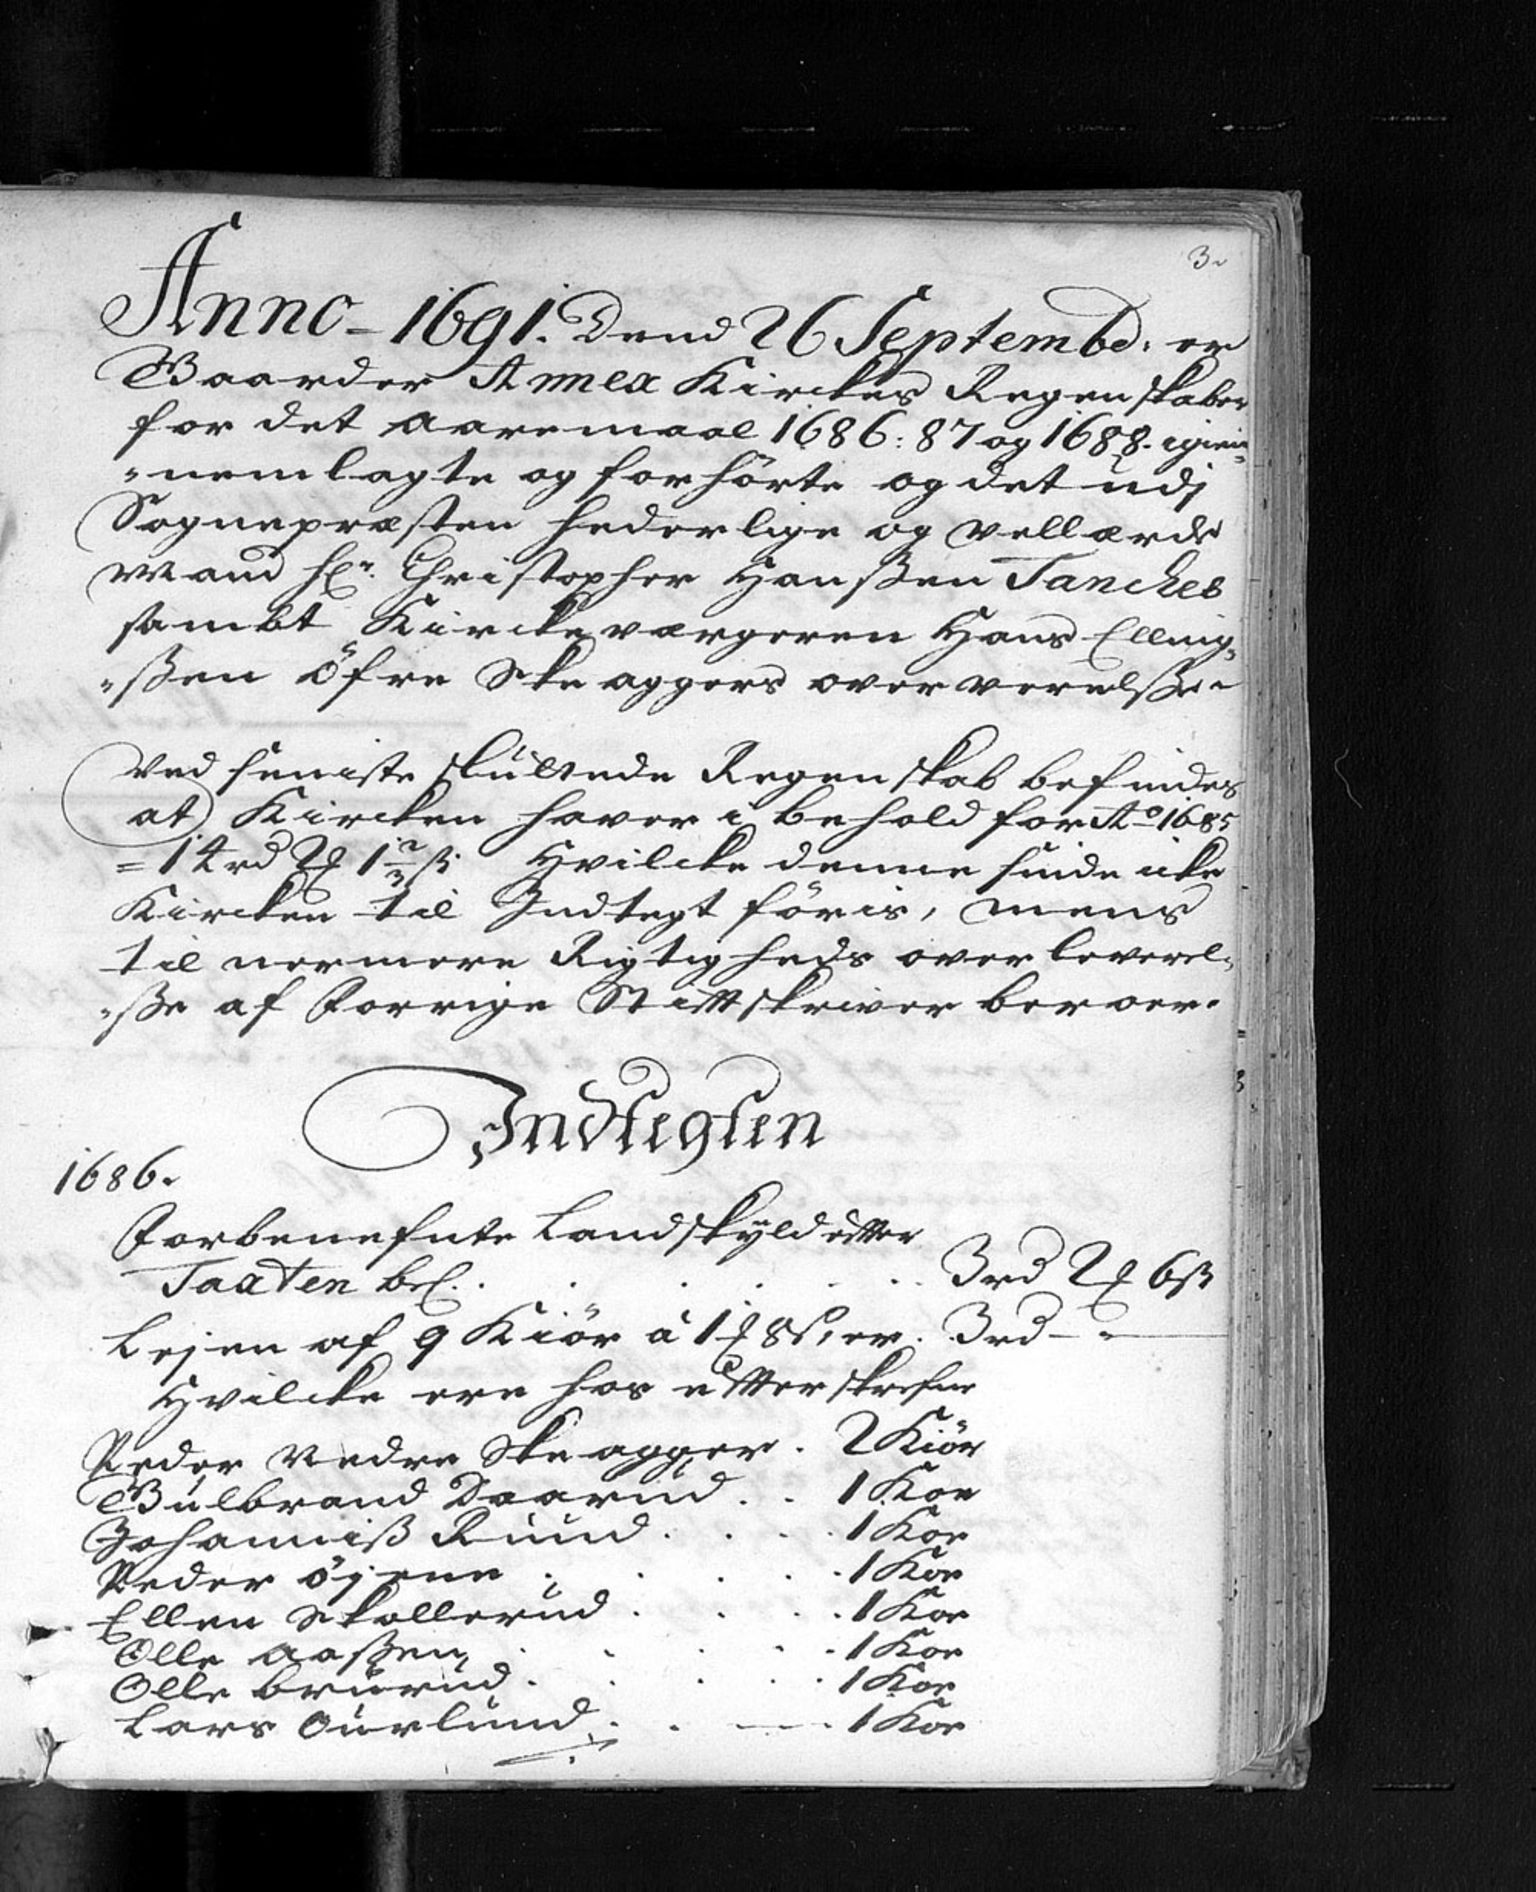 3.
Anno - 1691. Dend 26 Septembr: er
Baarder Annex Kirckes Regenskaber
for det aaremaal 1686: 87 og 1688. igien=
=nemlagte og forhörte og det udj
Sognepræsten hederlige og vellærde
Mand hr. Christopher Hanßen Tanches
sambt Kirckeværgeren Hans Elling=
=ßen öfre Skeaggers oververelße.
Ved seniste sluttede Regenskab befindes
at Kircken haver i behold for Ao 1685
= 14 rd 2 ¶ 1 2/3 ß. Hvilcke denne sinde icke
Kircken til Indtegt föris, mens
til nermere Rigtigheds overleverel=
=ße af Forrige Stittskriver beroer.
Indtegten
1686.
Forbenefnte Landskyld etter
Taxten ber. . . . . . 3 rd 2 ¶ 6 ß
Lejen af 9 Kiör à 1 ¶ 8 ß, er. 3 rd - -
Hvilcke ere hos etterskrefne
Peder Nedre Skeagger . 2 Kiör
Gulbrand Daarud . . 1 Koe
Johanniß Ruud . . . . 1 Koe
Peder öjene . . . . 1 Koe
Ellen Skollerud . . . 1 Koe
Olle Aaßen . . . . 1 Koe
Olle bruerud . . . . 1 Koe
Lars Ourlund . . . 1 Koe